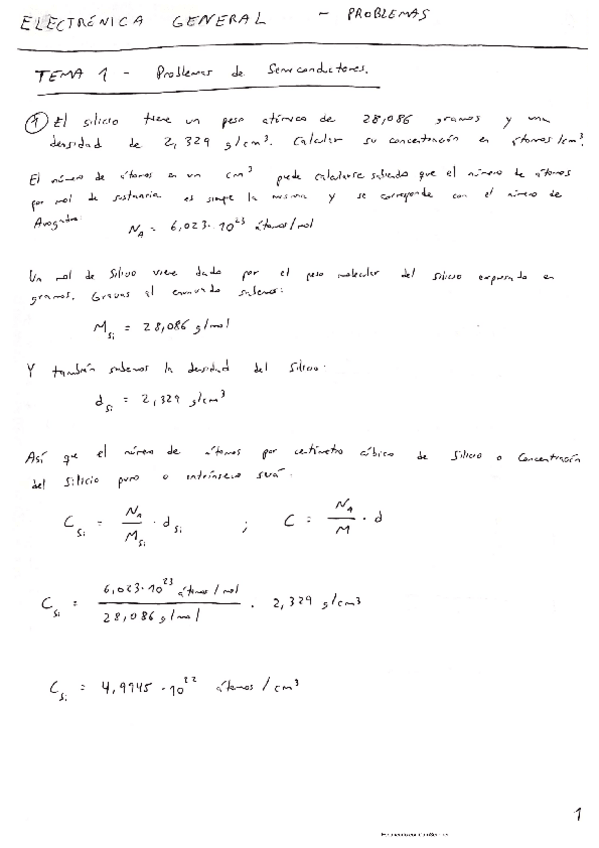 ELECTRÓNICA GENERAL - PROBLEMAS
TEMA 1 - Problemas de Semiconductores.
① El silicio tiene un peso atómico de 28,086 gramos y una
densidad de 2,329 g/cm³. Calcular su concentración en átomos/cm³.
El número de átomos en un cm³ puede calcularse sabiendo que el número de átomos
por mol de sustancia es siempre la misma y se corresponde con el número de
Avogadro
N_A = 6,023·10²³ átomos/mol
Un mol de Silicio viene dado por el peso molecular del silicio expresado en
gramos. Gracias al enunciado sabemos:
M_Si = 28,086 g/mol
Y también sabemos la densidad del silicio.
d_Si = 2,329 g/cm³
Así que el número de átomos por centímetro cúbico de Silicio o Concentración
del Silicio puro o intrínseco será.
C_Si = N_A / M_Si · d_Si ; C = N_A / M · d
C_Si = 6,023·10²³ átomos/mol / 28,086 g/mol · 2,329 g/cm³
C_Si = 4,9945·10²² átomos/cm³
1